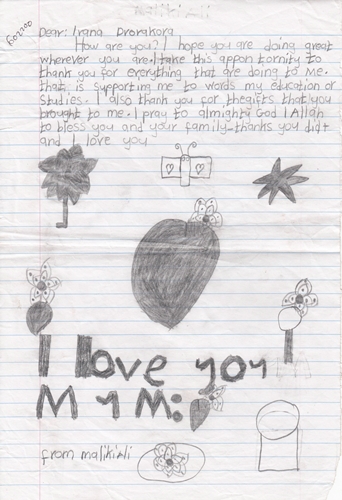 Dear: Irana Dvorakora
How are you? I hope you are doing great
wherever you are. I take this appon tornity to
thank you for everything that are doing to me.
that is supporting me to words my education or
studies. I also thank you for thegifts that you
brought to me. I pray to almighty God I Allah
to bless you and your family thanks you didt
and I love you
I love you
MyM:
from malikiali